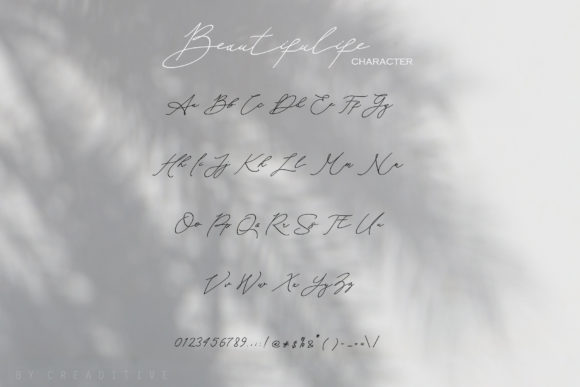 Beautifulife
CHARACTER
Aa Bb Cc Dd Ee Ff Gg
Hh Ii Jj Kk Ll Mm Nn
Oo Pp Qq Rr Ss Tt Uu
Vv Ww Xx Yy Zz
0123456789..:;! @#$%&* ( ) - _ + = \ /
BY CREADITIVE